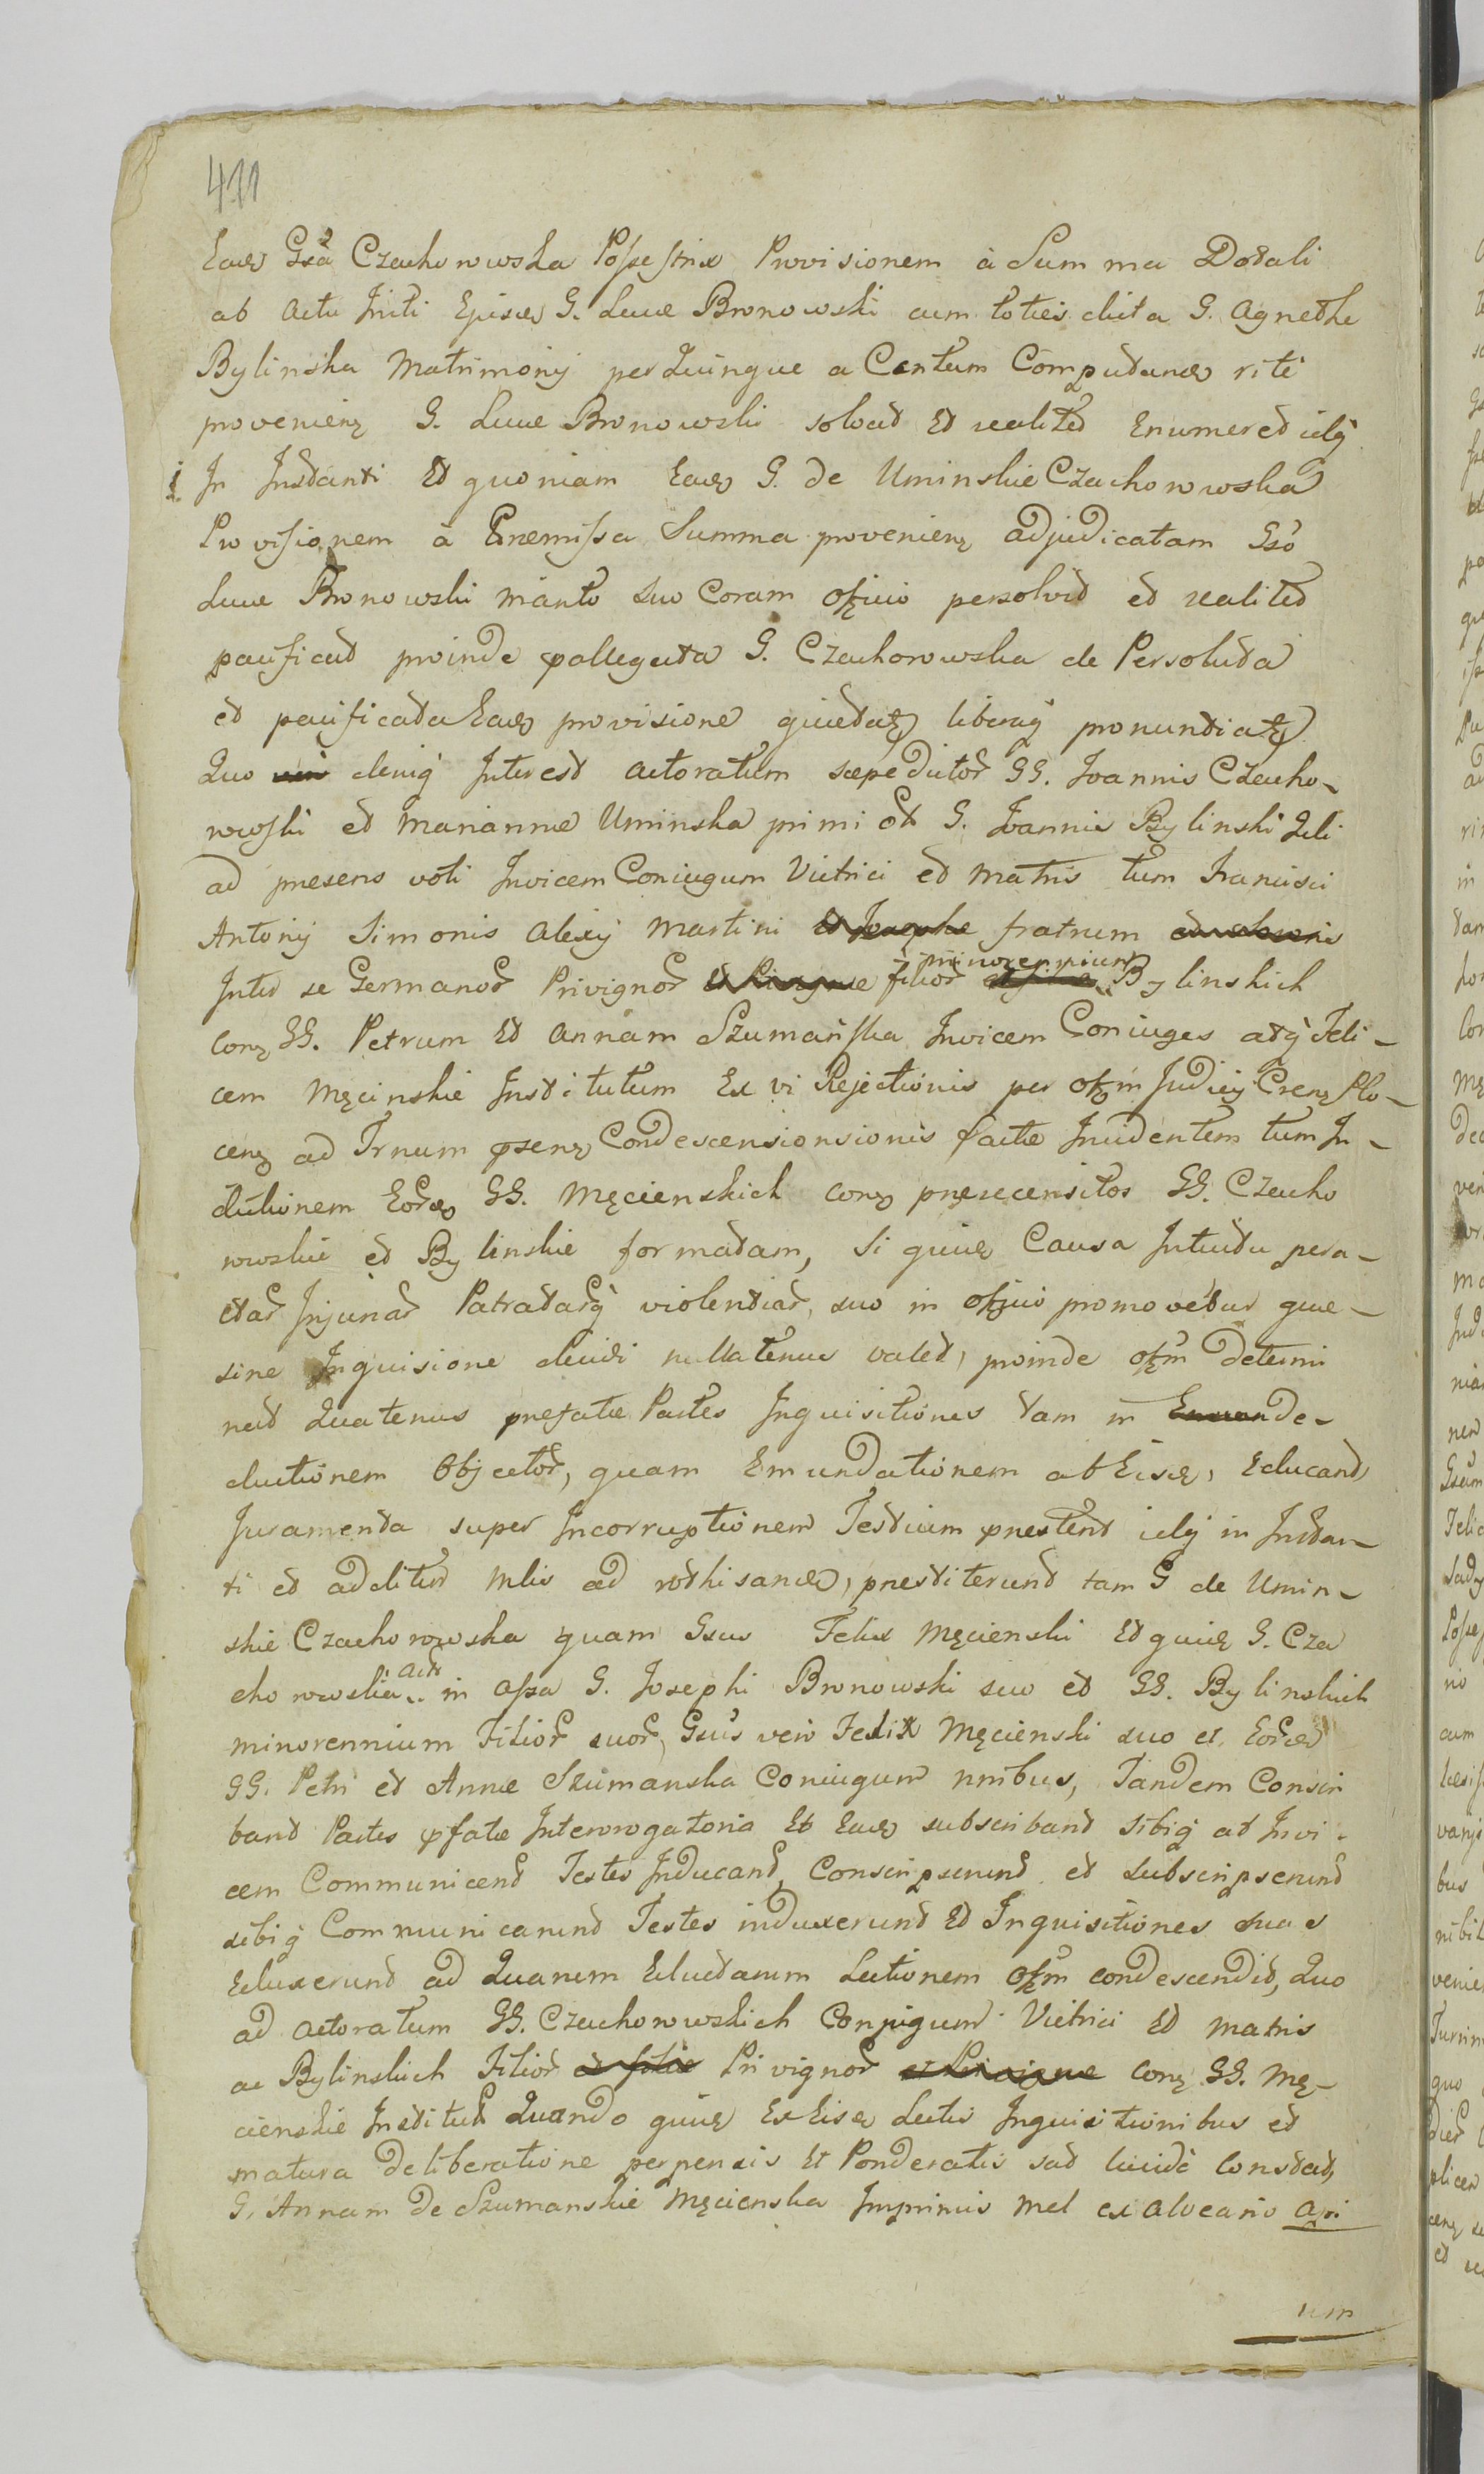 411
Eadę Gsa Czachorowska Possestrix Provisionem à Summa Dotali
ab actu Initi Ejusdę G. Lucæ Bronowski cum toties dicta G. Agnethe
Bylinska Matrimonij per Quinque a Centum Computandę rite
provenienę G. Lucæ Bronowski solvat Et realiter Enumeret idqȝ
In Instanti Et quoniam Eadę G. de Uminskie Czachorowska
Provisionem à Præmissa Summa provenienę adjudicatam Gso
Lucæ Bronowski marito suo Coram Officio persolvit et realiter
pacificat proinde præallegata G. Czachorowska de Persoluta
et pacificata Eadę provisione quietatę liberaqȝ pronuntiatę
Quo deniqȝ Interest actoratum sæpedictor GG. Joannis Czacho-
rowski et Mariannæ Uminska primi olt G. Joannis Bylinski
ad præsens voti Invicem Coniugum Vitrici et Matris tum Francisci
Antonij Simonis Alexij Martini fratrum
Inter se Germanor Privignor filior minorennium Bylinskich
Conę GG. Petrum Et Annam Szumańska Invicem Coniuges atqȝ Feli-
cem Męcinskie Institutum Ex vi Rejectionis per Offm Judicij Plo-
cenę ad Trnum præsenę Condescensionsionis factæ Incidentem tum In-
ductionem Eordę GG. Męcienskich conę præscensitos GG. Czacho
rowskie et Bylinskie formatam, Si quidę Causa Intuitu pera-
ctar Injuriar Patratarqȝ violentiar, suo in officio promovetur quæ-
sine Inquisitione decidi nullatenus valet, proinde offm determi
nat Quatenus præfatæ Partes Inquisitiones tam in de-
ductionem Objector, quam Emundationem ab Eisdę, Educant
Juramenta super Incorruptionem Testium præstent idqȝ in Instan-
ti et additur Mlis ad rothisandę, præstiterunt tam G de Umin-
skie Czachorowska quam Gsus Felix Męcienski Et quidę G. Cza
chorowska act in assa G. Josephi Bronowski suo et GG. Bylinskich
minorennium Filior suor, Gsus vero Felix Męcienski suo et Eordę
GG. Petri et Annæ Szumanska Coniugum nnibus, Tandem Conscri
bant Partes præfatæ Interrogatoria Et Eadę subscribant Sibiqȝ ad Invi-
cem Communicent Testes Inducant, Conscripserunt et subscripserunt
sibiqȝ Communicarunt Testes induxerunt Et Inquisitiones suas
Eduxerunt ad Quarum Eductarum Lectionem offm condescendit, Quo
ad actoratum GG. Czachorowskich Conjugum Vitrici Et matris
ac Bylinskich Filior Privignor conę GG. Mę-
cienskie Institut Quando quidę Ex Eisdę Lectis Inquisitionibus et
matura deliberatione perpensis Et Ponderatis sat lucide Constat,
G. Annam De Szumanskie Męcienska Imprimis mel ex alveario api
um